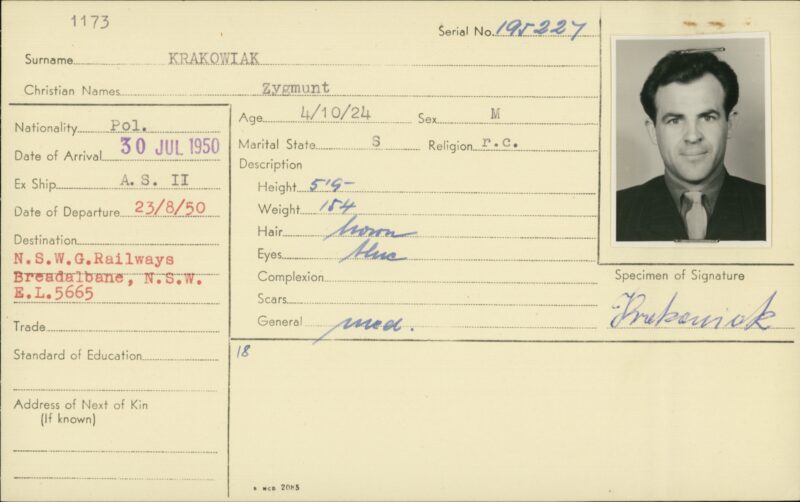 1173
Serial No. 195227
Surname KRAKOWIAK
Christian Names Zygmunt
Nationality Pol.
Date of Arrival 30 JUL 1950
Ex Ship A.S. II
Date of Departure 23/8/50
Destination
N.S.W.G.Railways
Breadalbane, N.S.W.
E.L.5665
Trade
Standard of Education
Address of Next of Kin
(If known)
Age 4/10/24 Sex M
Marital State S Religion r.c.
Description
Height 5'9-
Weight 154
Hair brown
Eyes blue
Complexion
Scars
General med.
18
Specimen of Signature
Krakowiak